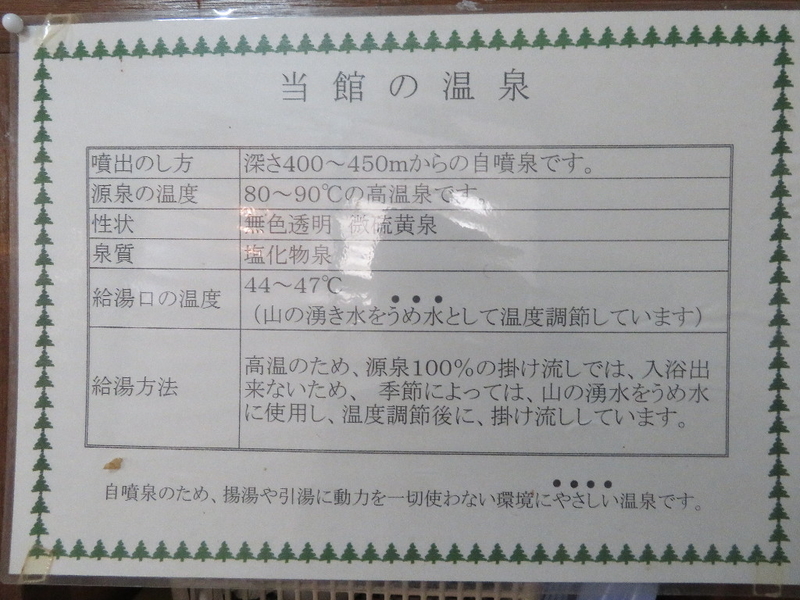 当館の温泉
噴出のし方 深さ400～450mからの自噴泉です。
源泉の温度 80～90℃の高温泉です。
性状 無色透明 微硫黄泉
泉質 塩化物泉
給湯口の温度 44～47℃
（山の湧き水をうめ水として温度調節しています）
給湯方法 高温のため、源泉100％の掛け流しでは、入浴出
来ないため、 季節によっては、山の湧水をうめ水
に使用し、温度調節後に、掛け流ししています。
自噴泉のため、揚湯や引湯に動力を一切使わない環境にやさしい温泉です。